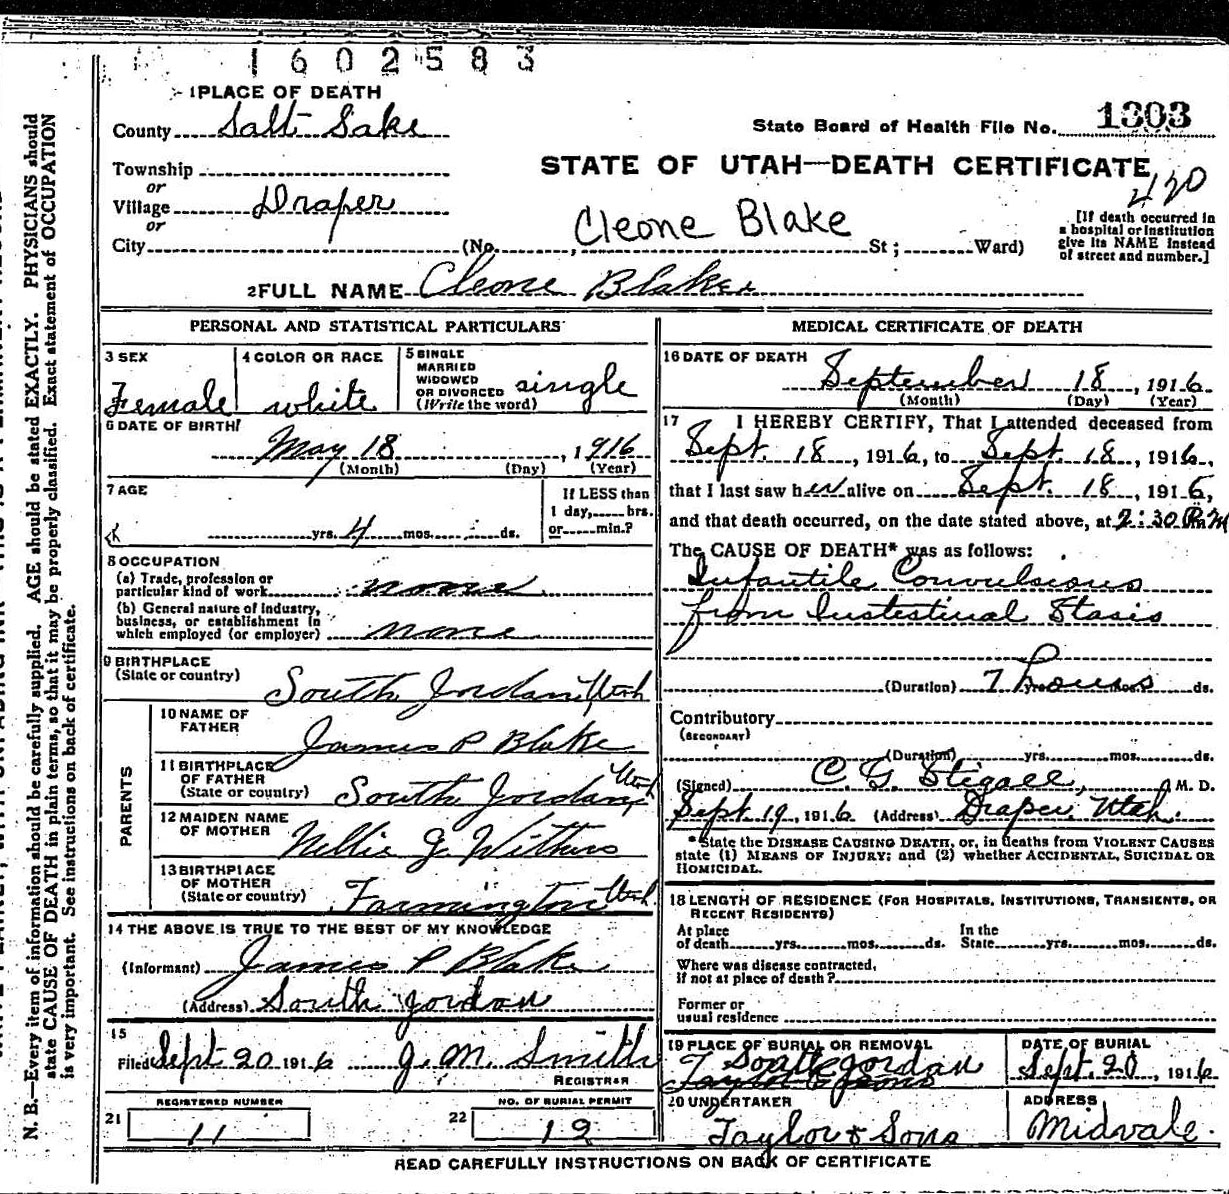 1602583
1 PLACE OF DEATH
County Salt Lake
State Board of Health File No. 1303
Township
or
Village Draper
or
City (No. , St; Ward)
STATE OF UTAH—DEATH CERTIFICATE
420
Cleone Blake
[If death occurred in
a hospital or institution
give its NAME instead
of street and number.]
2 FULL NAME Cleone Blake
PERSONAL AND STATISTICAL PARTICULARS
3 SEX
Female
4 COLOR OR RACE
white
5 SINGLE
MARRIED
WIDOWED
OR DIVORCED
(Write the word)
single
6 DATE OF BIRTH
May 18, 1916
(Month) (Day) (Year)
7 AGE
yrs. 4 mos. ds.
If LESS than
1 day, hrs.
or min.?
8 OCCUPATION
(a) Trade, profession or
particular kind of work none
(b) General nature of industry,
business, or establishment in
which employed (or employer) none
9 BIRTHPLACE
(State or country) South Jordan, Utah
PARENTS
10 NAME OF
FATHER James P Blake
11 BIRTHPLACE
OF FATHER
(State or country) South Jordan, Utah
12 MAIDEN NAME
OF MOTHER Nellie G. Withers
13 BIRTHPLACE
OF MOTHER
(State or country) Farmington Utah
14 THE ABOVE IS TRUE TO THE BEST OF MY KNOWLEDGE
(Informant) James P Blake
(Address) South Jordan
15
Filed Sept 20 1916 J. M. Smith
REGISTRAR
REGISTERED NUMBER
21 11
NO. OF BURIAL PERMIT
22 12
MEDICAL CERTIFICATE OF DEATH
16 DATE OF DEATH
September 18, 1916
(Month) (Day) (Year)
17 I HEREBY CERTIFY, That I attended deceased from
Sept. 18, 1916, to Sept. 18, 1916,
that I last saw her alive on Sept. 18, 1916,
and that death occurred, on the date stated above, at 2:30 P.M
The CAUSE OF DEATH* was as follows:
Infantile Convulsions
from Instestinal Stasis
(Duration) 7 hours ds.
Contributory
(SECONDARY)
(Duration) yrs. mos. ds.
(Signed) C. G. Stigall, M. D.
Sept. 19, 1916 (Address) Draper, Utah.
*State the DISEASE CAUSING DEATH, or, in deaths from VIOLENT CAUSES
state (1) MEANS OF INJURY; and (2) whether ACCIDENTAL, SUICIDAL OR
HOMICIDAL.
18 LENGTH OF RESIDENCE (FOR HOSPITALS, INSTITUTIONS, TRANSIENTS, OR
RECENT RESIDENTS)
At place
of death yrs. mos. ds.
In the
State yrs. mos. ds.
Where was disease contracted,
if not at place of death?
Former or
usual residence
19 PLACE OF BURIAL OR REMOVAL
South Jordan
DATE OF BURIAL
Sept. 20, 1916
20 UNDERTAKER
Taylor & Sons
ADDRESS
Midvale.
READ CAREFULLY INSTRUCTIONS ON BACK OF CERTIFICATE
N. B.—Every item of information should be carefully supplied. AGE should be stated EXACTLY. PHYSICIANS should
state CAUSE OF DEATH in plain terms, so that it may be properly classified. Exact statement of OCCUPATION
is very important. See instructions on back of certificate.